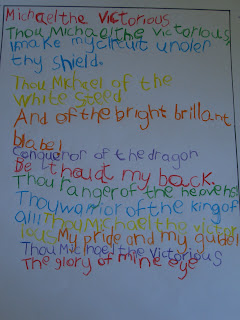 Michael the Victorious
Thou Michael the victorious,
I make my circuit under
thy shield.
Thou Michael of the
White Steed.
And of the bright brillant
blabel
Conqueror of the dragon
Be thou at my back.
Thou ranger of the heavens!
Thou warrior of the king of
all! Thou Michael the victor
ious! My pride and my guide!
Thou Michael the Victorious
The glory of mine eye